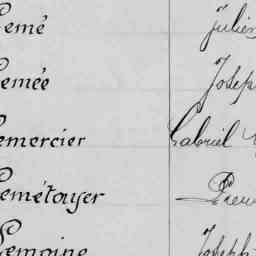 Lemé Julien
Lemée Joseph
Lemercier Gabriel
Lemétayer Pierre
Lemoine Joseph